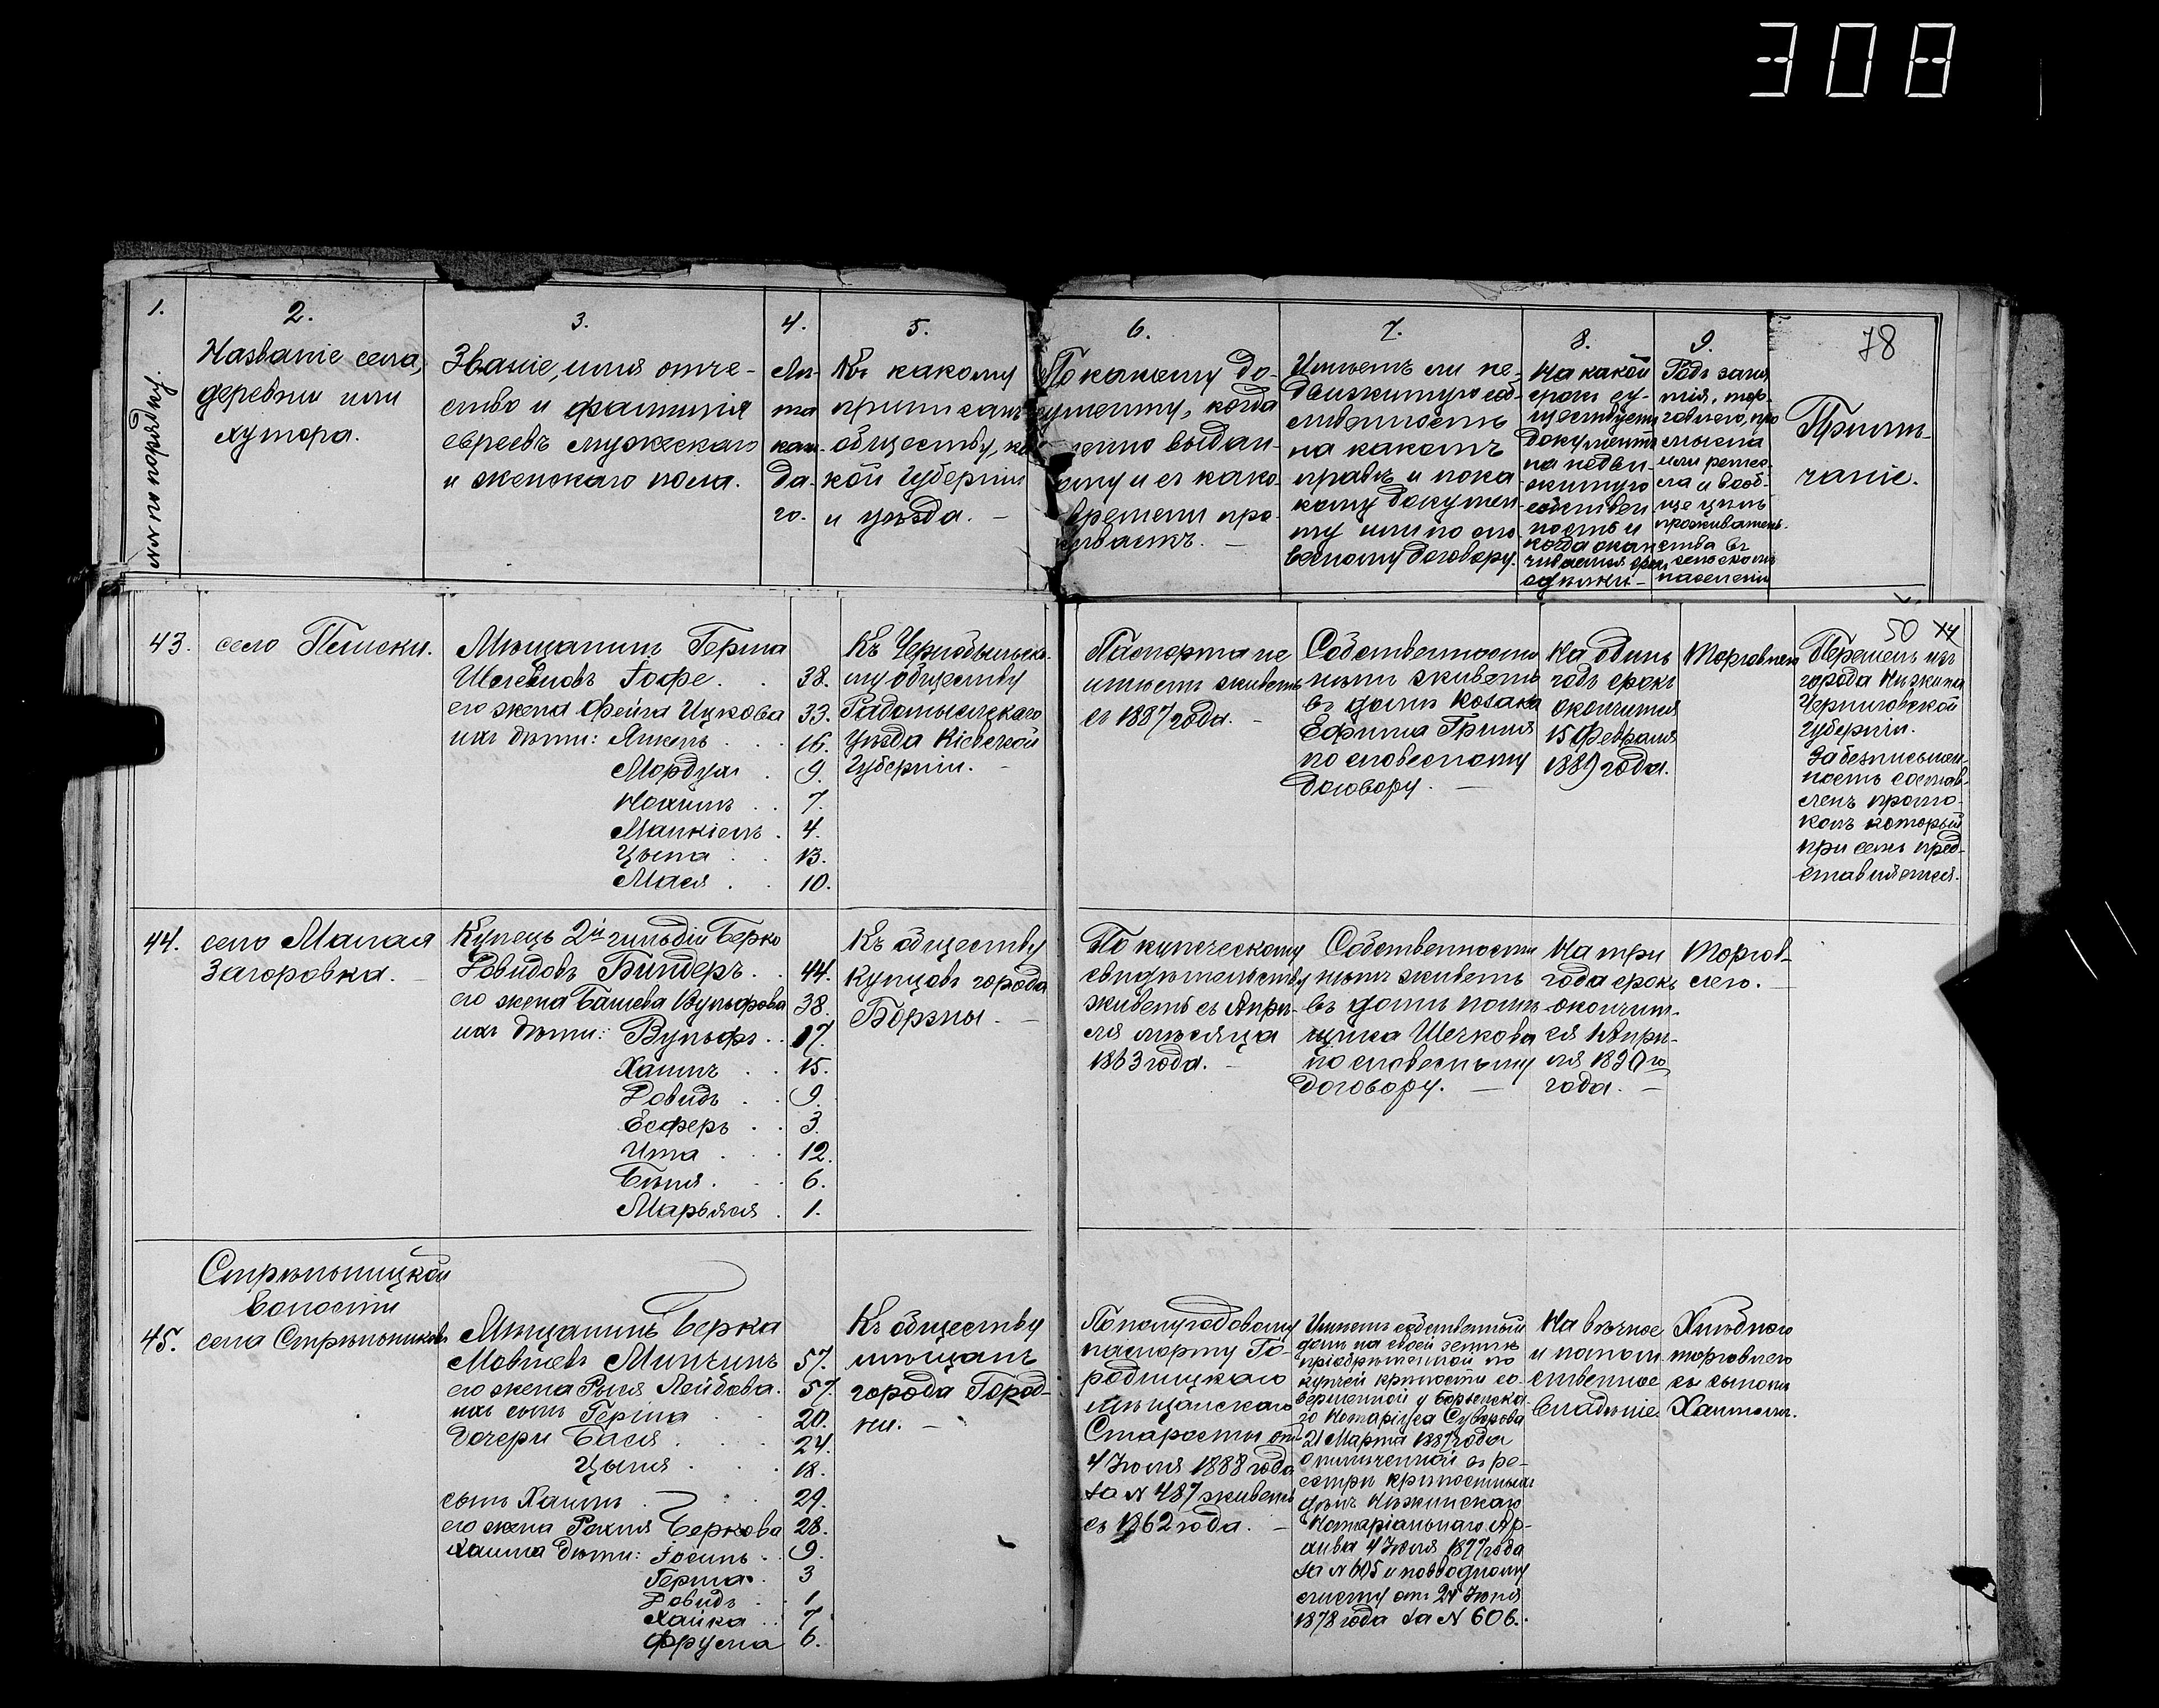 308
1.
№№ по порядку.
2.
Названіе села,
деревни или
хутора.
3.
Званіе, имя отче-
ство и фамилія
евреевъ мужескаго
и женскаго пола.
4.
Лѣ-
та
каж-
да-
го.
5.
Къ какому
приписанъ
обществу, ка
кой губерніи
и уѣзда. –
6.
По какому до-
кументу, когда
выдан-
ому и съ како-
времени про-
живаетъ. –
7.
Имѣетъ ли не-
движимую соб-
ственность
на какомъ
правѣ и по ка
кому докумен-
ту или по сло-
весному договору.
8.
На какой
срокъ су-
ществуетъ
документъ
на недви-
жимую
собствен
ность и
когда окан
чивается срок
сдѣлки –
9.
Родъ заня
тія, тор-
говлею, про
мысла
или ремес-
ла и вооб-
ще цѣль
проживатель-
ства въ
сельскомъ
населеніи
78
Примѣ-
чаніе.
43.
село Пемски.
Мѣщанинъ Герша
Шлевиовъ Іофе . . 38.
его жена Фейга Ицкова 33.
ихъ дѣти: Янкель . . . 16.
Мордух . 9.
Нохимъ . . 7.
Манкіель . 4.
Цыпа . . 13.
Мася . . 10.
Къ Чернобыльско-
му обществу
Радомысльскаго
уѣзда Кіевской
губерніи. –
Паспорта не
имѣетъ живетъ
съ 1887 года. –
Собственности
нѣтъ живетъ
въ домѣ козака
Ефима Гриня
по словесному
договору. –
На одинъ
годъ срокъ
окончится
15 Февраля
1889 года.
Торговлею
50
Перешелъ изъ
города Нѣжина
Черниговской
губерніи.
За безписьмен-
ность состав-
ленъ прото-
колъ который
при семъ пред-
ставляется.
44.
село Малая
Загоровка. –
Купецъ 2й гильдіи Берко
Довидовъ Биндеръ . . 44.
его жена Башева Вульфова 38.
ихъ дѣти: Вульфъ . . 17.
Хаимъ . . 15.
Довидъ . . 9.
Есферъ . . 3.
Ита . . . 12.
Бѣля . . . 6.
Марьяся . 1.
Къ обществу
купцовъ города
Борзны. –
По купеческому
свидѣтельству
живетъ съ Апрѣ-
ля мѣсяца
1863 года. –
Собственности
нѣтъ живетъ
въ домѣ помѣ-
щика Шечкова
по словесному
договору. –
На три
года срокъ
окончит-
ся 1 Апрѣ-
ля 1890 го
года. –
Торгов-
лею. –
Стрѣльницкой
волости
45.
села Стрѣльниковъ
Мѣщанинъ Берка
Мовшевъ Минкинъ 57.
его жена Рыся Лейбова. 57.
ихъ сынъ Герша . . 20.
Дочери Бася . . . 24.
Цыпя . . . 18.
сынъ Хаимъ . . . 29.
его жена Рахля Беркова 28.
Хаима дѣти: Іосипъ . . 9.
Герша . . 3
Довидъ . 1
Хайка . . 7
Фрума 6.
Къ обществу
мѣщанъ
города Город-
ни. –
По полугодовому
паспорту Го-
родницкаго
мѣщанскаго
Старосты отъ
4 Іюля 1888 года
за N 487 живетъ
съ 1862 года. –
Имѣетъ собственный
домъ на своей землѣ
пріобрѣтенной по
купчей крѣпости со-
вершенной у Борзенска-
го Нотаріуса Суворова
21 Марта 1887 года
отмѣченной въ ре-
естрѣ крѣпостныхъ
дѣлъ Нѣжинскаго
Нотаріальнаго Ар-
хива 4 Іюля 1877 года
за N 605 и повводному
листу отъ 24 Іюня
1878 года за N 606.
На вѣчное
и потом
ственное
владѣніе.
Хлѣбною
торговлею
съ сыномъ
Хаимомъ.